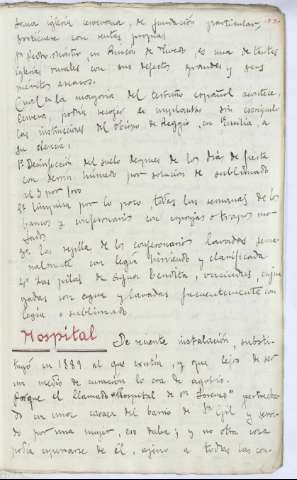 tercera iglesia cerverana, de fundación particular,
sostiénese con rentas propias
Sn Pedro mártir en Rincón de Olivedo es una de tantas
iglesias rurales con sus defectos grandes y sus
méritos escasos.
Cual en la mayoría del terruño español acontece
Cervera, podría recoger e implantar sin escrúpulo
las instrucciones del Obispo de Reggio, en Emilia, a
su clerecía:
1ª Desinfección del suelo despues de los días de fiesta
con serrin húmedo por solución de sublimado
al 3 por 1000
2ª limpieza por lo poco, todas las semanas de los
bancos y confesonarios con esponjas o trapos mo-
jados
3ª La rejilla de los confesonarios lavados sema-
nalmente con legía hirviendo y clarificada
4ª Las pilas de agua bendita, vaciadas, enjua-
gadas con agua y lavadas frecuentemente con
legía o sublimado.
Hospital De reciente instalación, substi-
tuyó en 1889 al que existía, y que lejos de ser
un medio de curación lo era de agobio.
Porque el llamado "Hospital de Sn Lorenzo" pertrecha-
do en una casa del barrio de Sn Gil y servi-
do por una mujer, eso daba; y no otra cosa
podía esperarse de él, ajeno a todas las con-